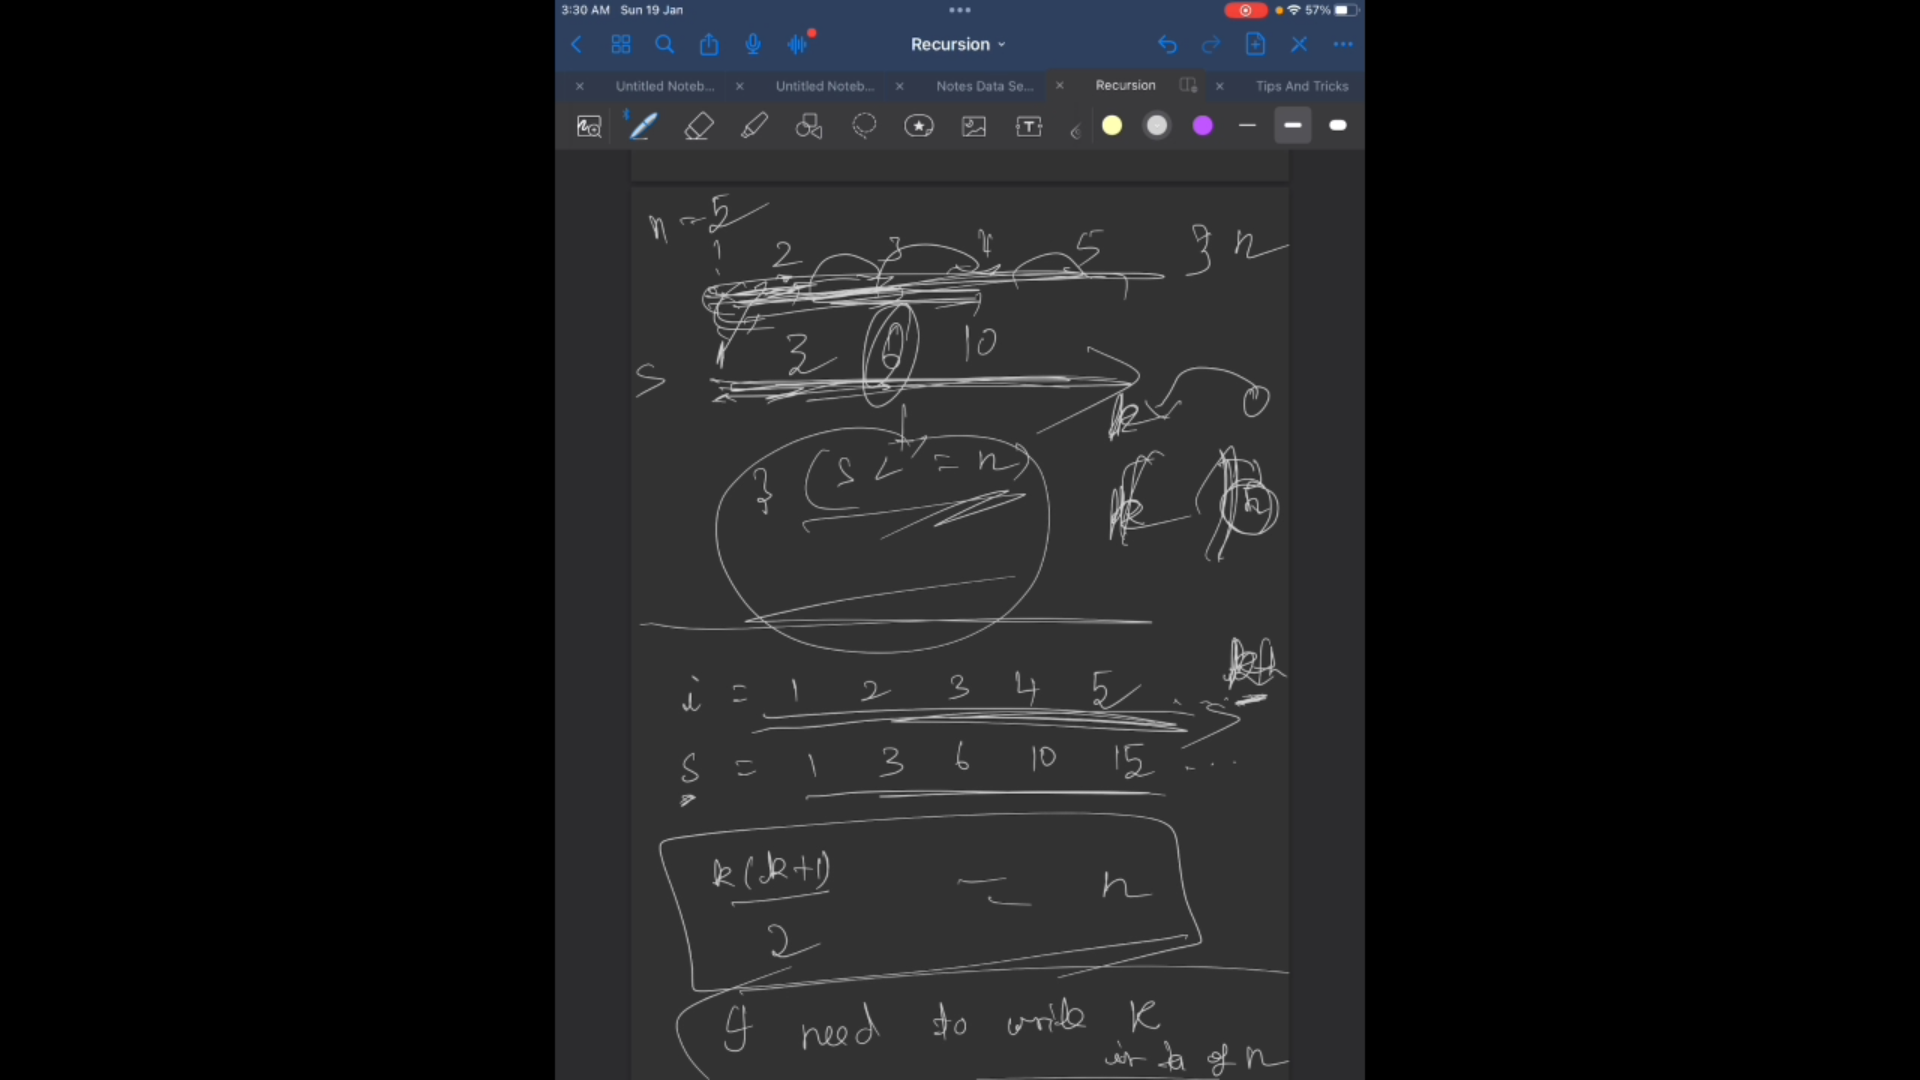 3:30 AM Sun 19 Jan
57%
Recursion
Untitled Noteb...
Untitled Noteb...
Notes Data Se...
Recursion
Tips And Tricks
n = 5
1 2 3 4 5 } n
1 3 6 10
S
k
} (S <= n)
k n
i = 1 2 3 4 5 ... kth
S = 1 3 6 10 15 ...
k(k+1)
= n
2
I need to write K
of n